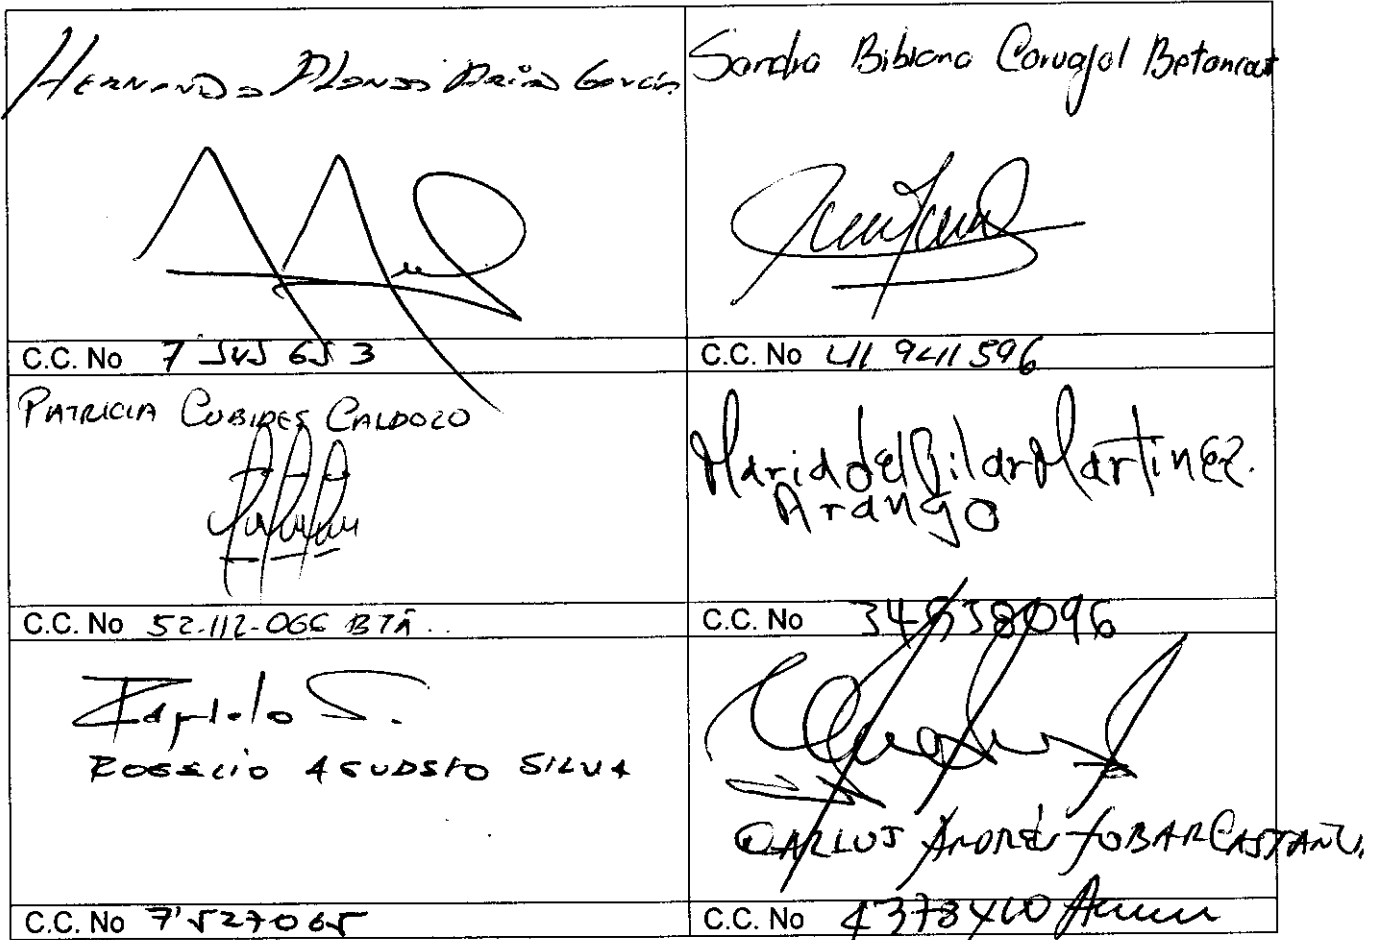 HERNANDO ALONSO ARIAS García
Sandra Bibiana Carvajal Betancourt
C.C. No 7'545 653
C.C. No 41 941 596
PATRICIA CUBIDES CALDOZO
Maria del Pilar Martinez.
Arango
C.C. No 52.112.066 BTÁ..
C.C. No
ROGELIO AGUDELO SILVA
CARLOS ANDRÉS TOBAR CASTAÑO.
C.C. No 7'527065
C.C. No